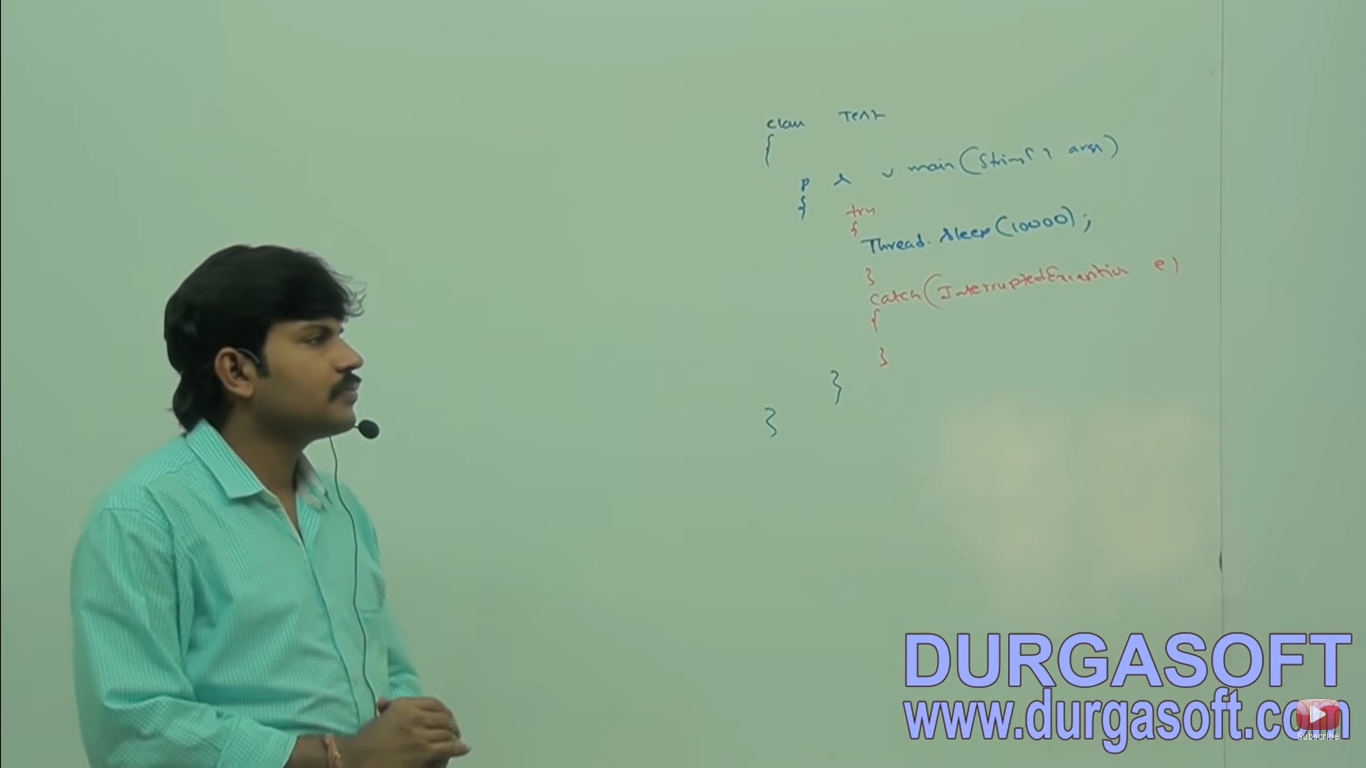 class Test
{
p s v main(String[] args)
{
try
{
Thread.sleep(10000);
}
catch(InterruptedException e)
{
}
}
}
DURGASOFT
www.durgasoft.com
Subscribe